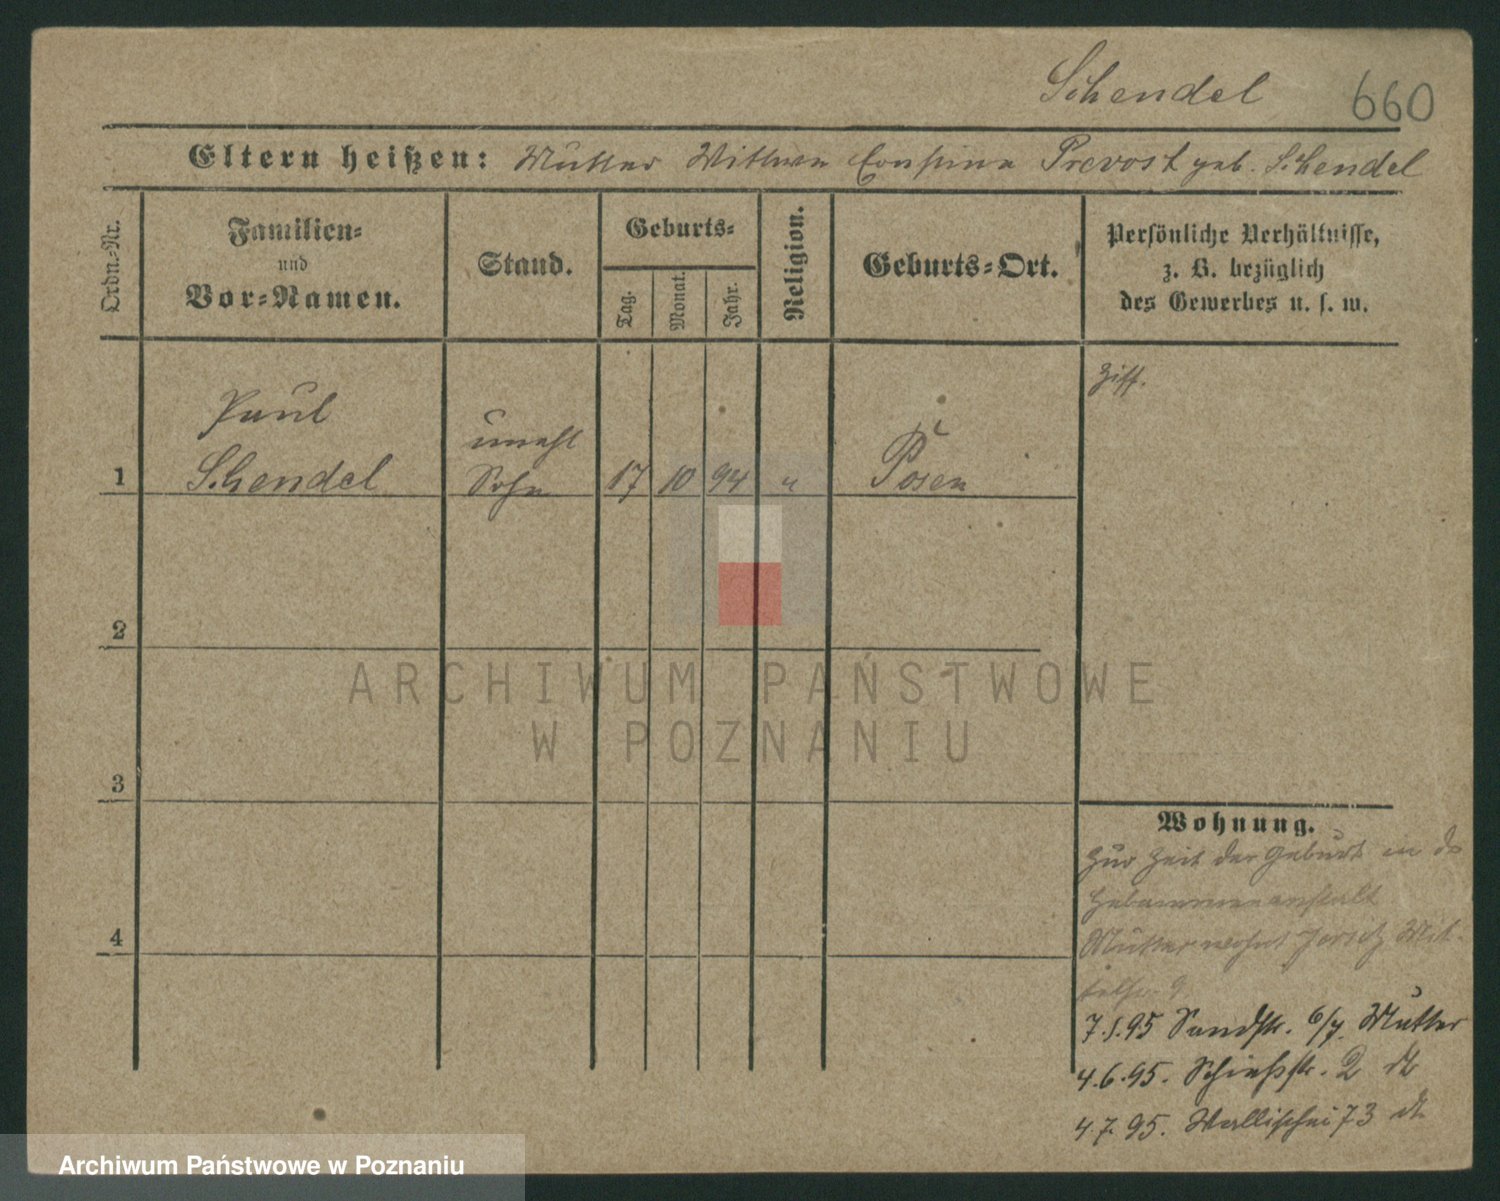 Schendel 660
Eltern heißen: Mutter Wittwe Prevost geb. Schendel
Ordn.-Nr.
Familien-
und
Vor-Namen.
Stand.
Geburts-
Tag.
Monat.
Jahr.
Religion.
Geburts-Ort.
Persönliche Verhältnisse,
z. B. bezüglich
des Gewerbes u. s. w.
Ziff.
Paul
Schendel
unehl
Sohn
17 10 94
Posen
1
2
3
4
ARCHIWUM PAŃSTWOWE
W POZNANIU
Wohnung.
Zur Zeit der Geburt in d
Hebammenanstalt
Mutter wohnt Jersitz Mit-
telstr. 9
7.1.95 Sandstr. 6/7. Mutter
4.6.95. Schießstr. 2 dt
4.7.95. Wallischei 73 dt
Archiwum Państwowe w Poznaniu